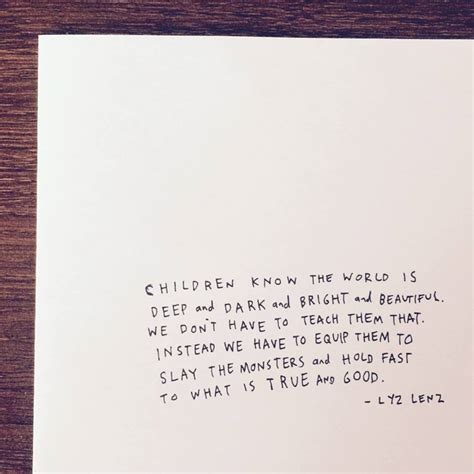 CHILDREN KNOW THE WORLD IS
DEEP and DARK and BRIGHT and BEAUTIFUL.
WE DON'T HAVE TO TEACH THEM THAT.
INSTEAD WE HAVE TO EQUIP THEM TO
SLAY THE MONSTERS and HOLD FAST
TO WHAT IS TRUE AND GOOD.
- LYZ LENZ